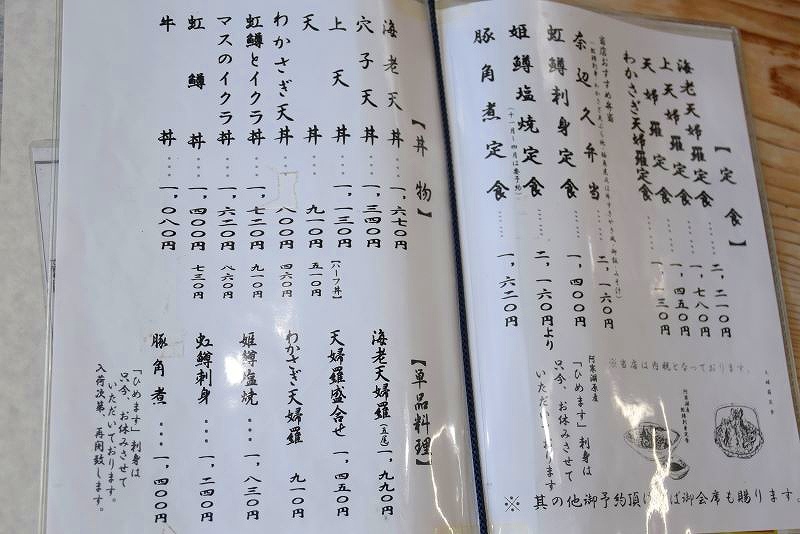 【定食】
海老天婦羅定食……二、二一〇円
上天婦羅定食……一、七八〇円
天婦羅定食……一、四五〇円
わかさぎ天婦羅定食……一、一三〇円
当店おすすめ弁当
奈辺久弁当……二、一六〇円
虹鱒刺身定食……一、四〇〇円
姫鱒塩焼定食……二、一六〇円より
(十一月～四月は要予約)
豚角煮定食……一、六二〇円
※当店は内税となっております。
阿寒湖原産
「ひめます」刺身は
只今、お休みさせて
いただいております。
※其の他御予約頂ければ御会席も賜ります。
【丼物】
海老天丼…一、六七〇円
穴子天丼…一、三四〇円
上天丼…一、一三〇円 【ハーフ丼】
天丼…九一〇円 五一〇円
わかさぎ天丼…八〇〇円 四六〇円
虹鱒とイクラ丼…一、七二〇円 九一〇円
マスのイクラ丼…一、六二〇円 八六〇円
虹鱒丼…一、四〇〇円 七三〇円
牛丼…一、〇八〇円
【単品料理】
海老天婦羅(五尾)一、九九〇円
天婦羅盛合せ 一、四五〇円
わかさぎ天婦羅 九一〇円
姫鱒塩焼…一、八三〇円
虹鱒刺身…一、二四〇円
豚角煮…一、四〇〇円
「ひめます」刺身は
只今、お休みさせて
いただいております。
入荷次第、再開致します。